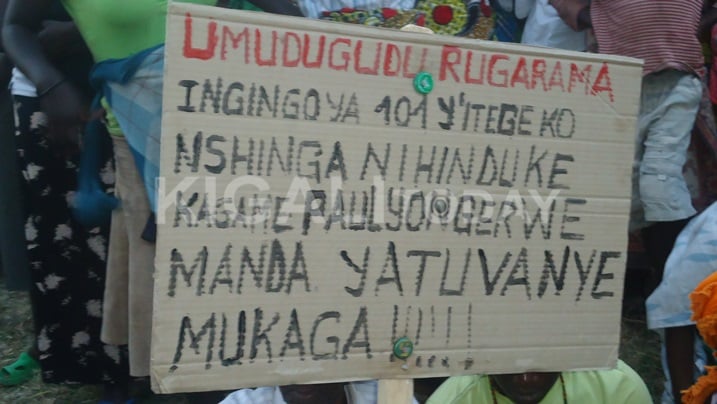 UMUDUGUDU RUGARAMA
INGINGO YA 101 Y'ITEGE KO
NSHINGA NIHINDUKE
KAGAME PAUL YONGERWE
MANDA YATUVANYE
MUKAGA!!!!!
KIGALI TODAY